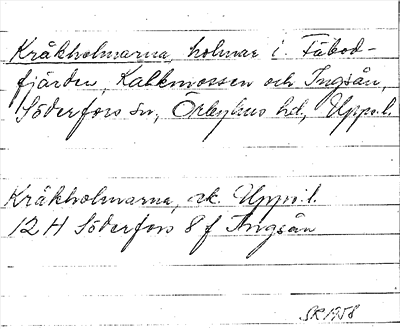 Kråkholmarna, holmar i Fäbod-
fjärden, Kalkmossen och Ingsån,
Söderfors sn, Örbyhus hd., Upps.l.
Kråkholmarna, ek. Upps.l.
12 H Söderfors 8 f Ingsån
SR 1958